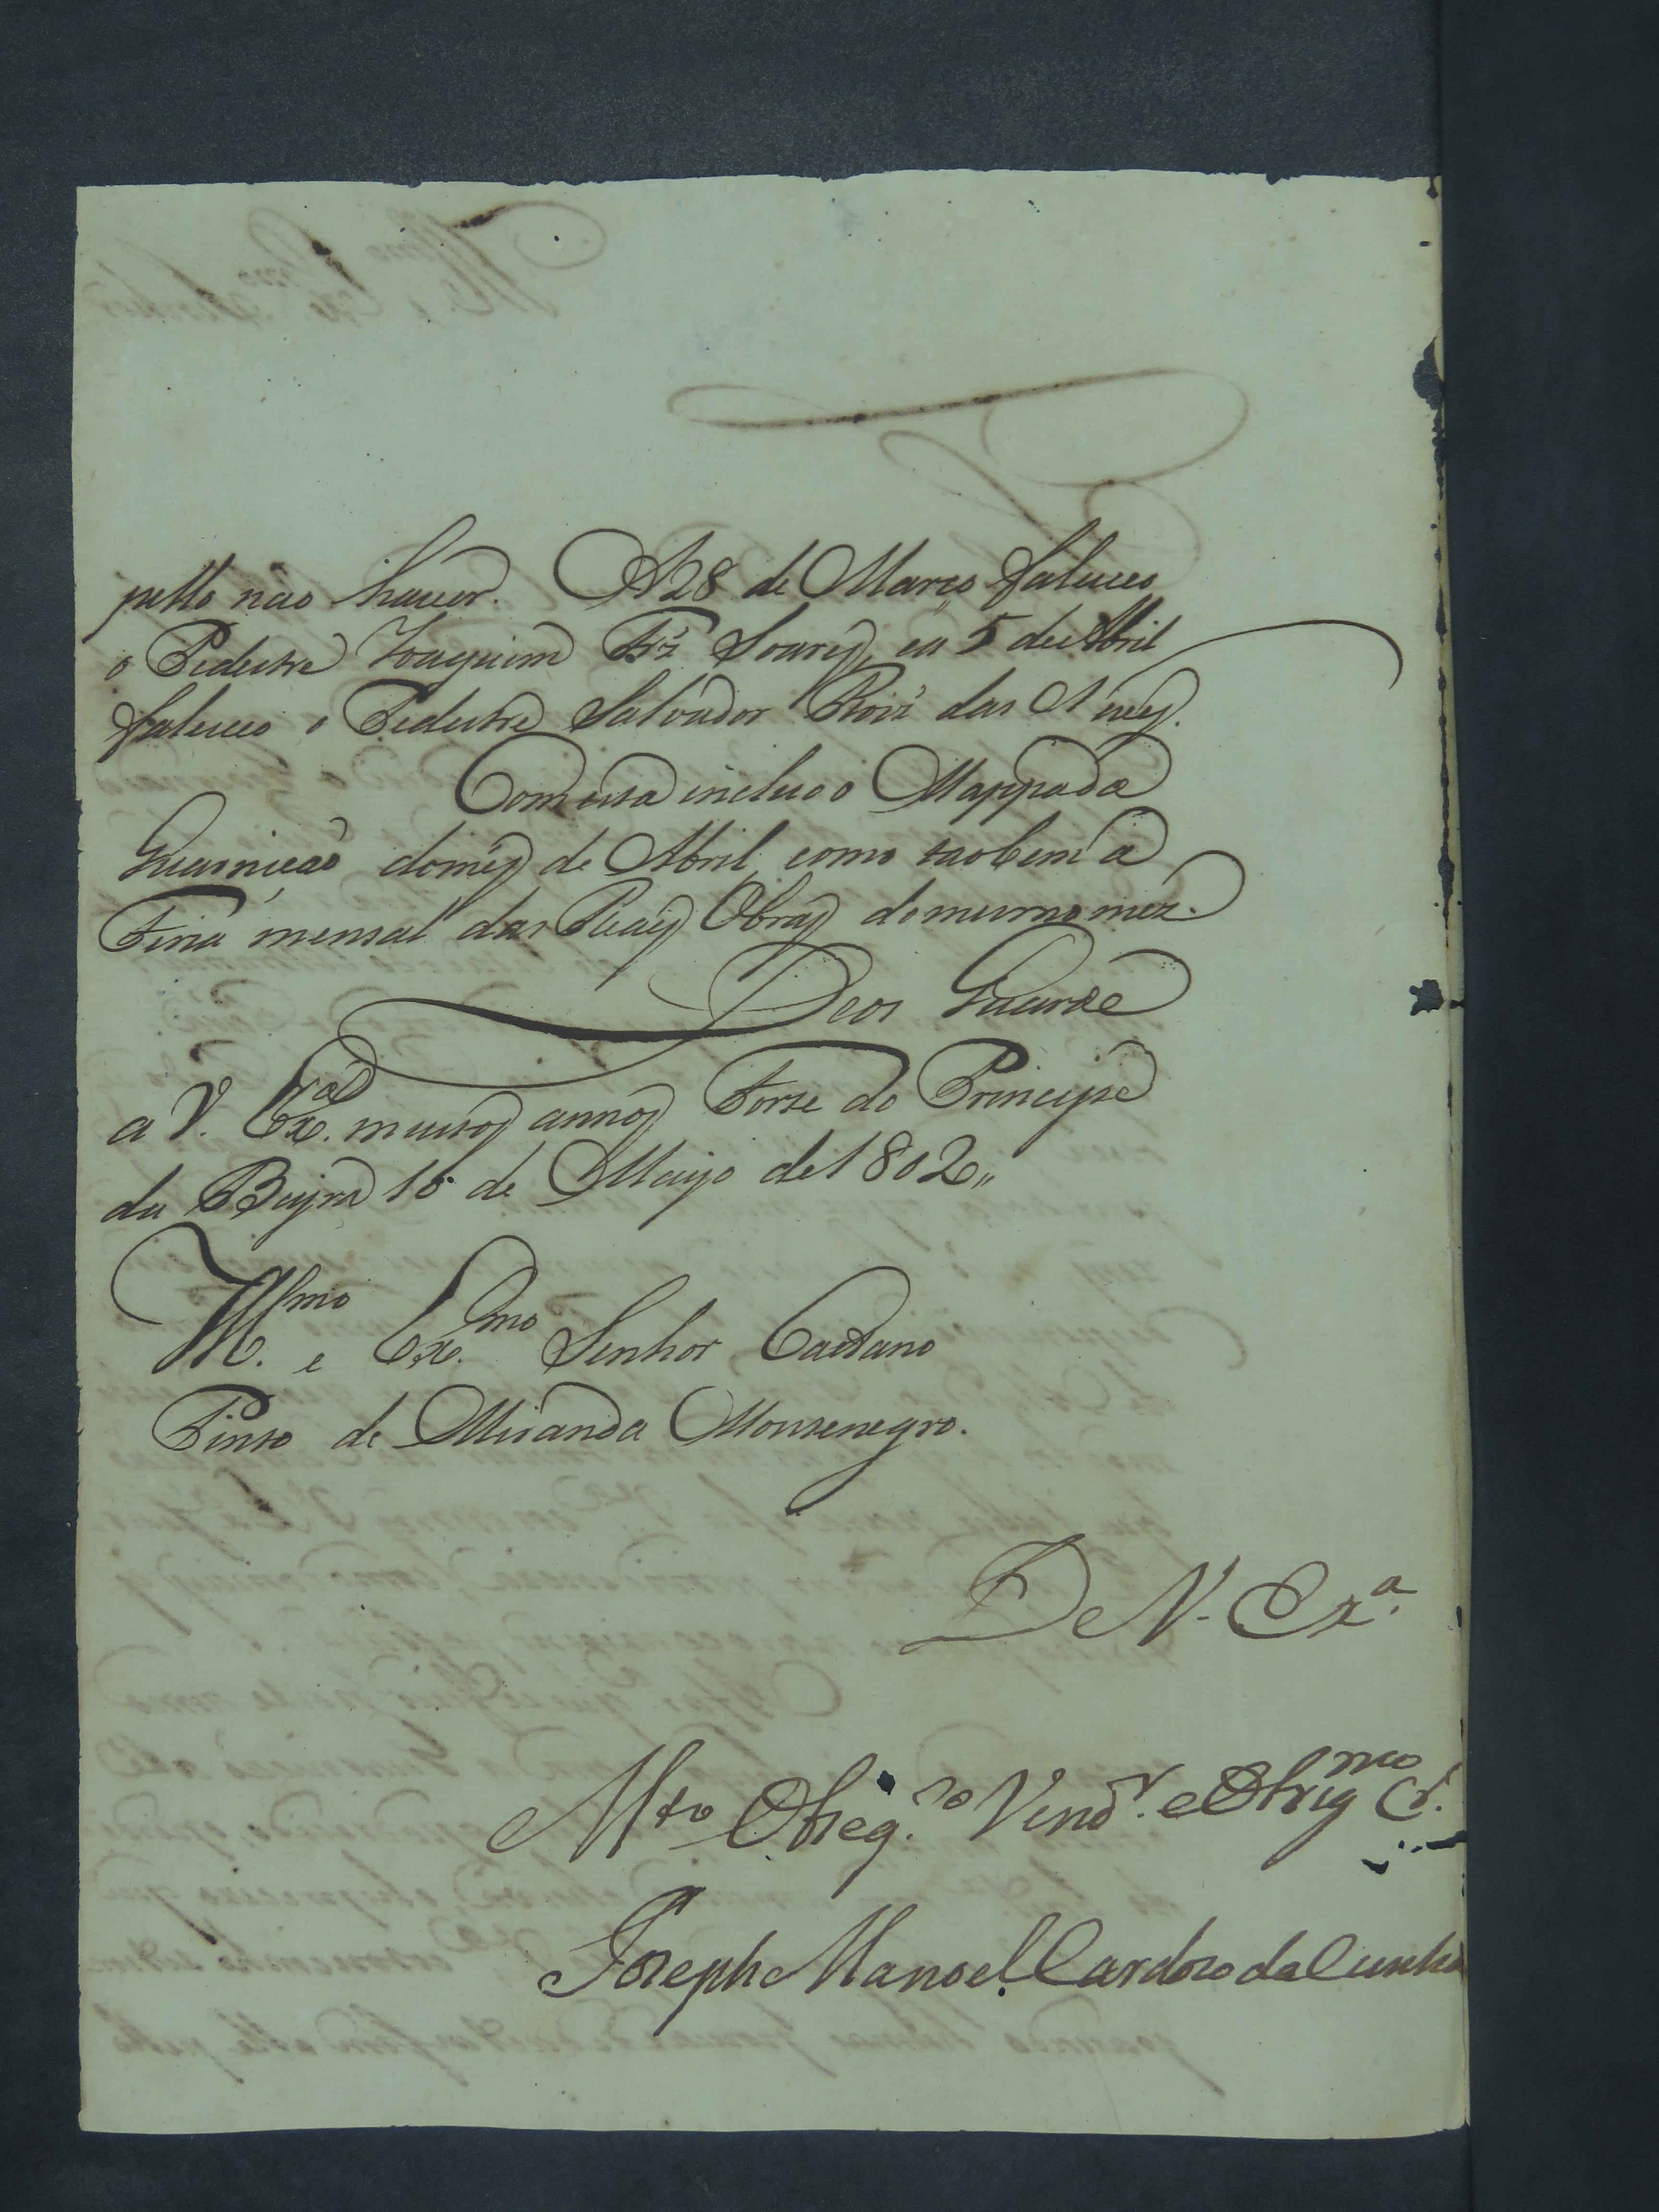 pello não haver. A 28 de Março faleceo
o Pedestre Joaquim Frz̃ Soares, e a 5 de Abril
faleceo o Pedestre Salvador Roiz̃ das Neves.
Com esta incluso o Mappa da
Guarnição do mes de Abril, como taobem a
Feria mensal das Reaes Obras do mesmo mez.
Deos Guarde
a V. Ex.ª muitos annos Forte do Principe
da Beyra 15 de Mayo de 1802,,
Ill.mo e Ex.mo Senhor Caetano
Pinto de Miranda Montenegro.
De V. Ex.ª
Mto Obseq.ro Vend.r e Obrigmo Cr.
Joseph Manoel Cardozo da Cunha